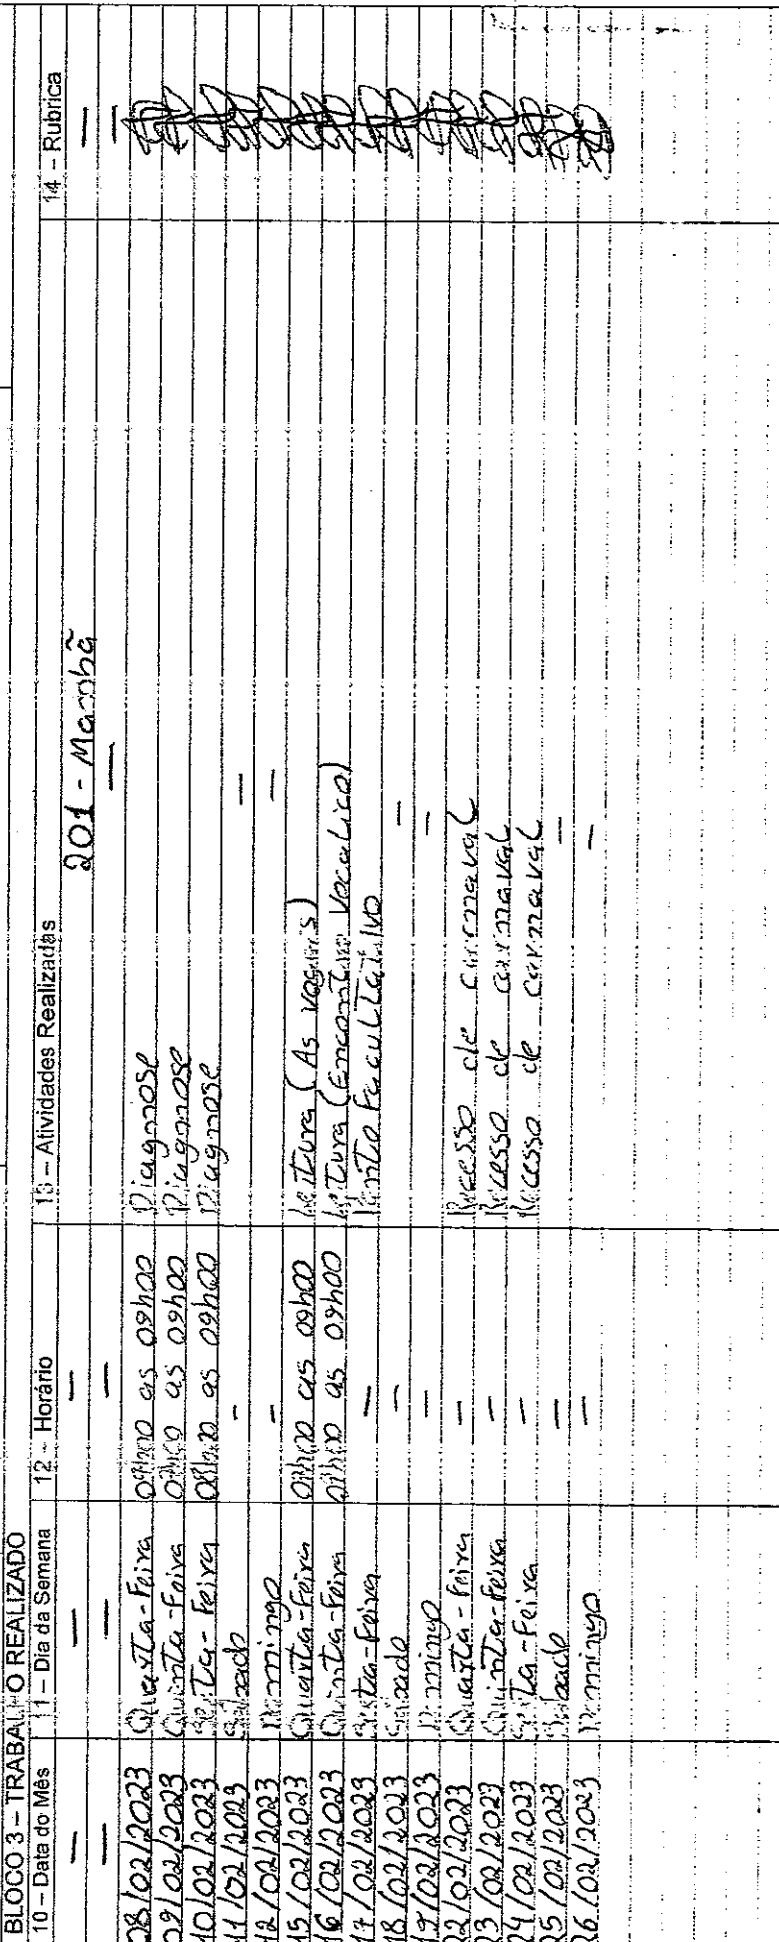 BLOCO 3 – TRABALHO REALIZADO
10 – Data do Mês 11 – Dia da Semana 12 – Horário 13 – Atividades Realizadas 14 – Rubrica
— — — 201 - Manhã —
— — — — —
08/02/2023 Quarta-Feira 08h00 as 09h00 Diagnose
09/02/2023 Quinta-Feira 08h00 as 09h00 Diagnose
10/02/2023 Sexta-Feira 08h00 as 09h00 Diagnose
11/02/2023 Sabado - —
12/02/2023 Domingo - —
15/02/2023 Quarta-Feira 08h00 as 09h00 Leitura (As vogais)
16/02/2023 Quinta-Feira 08h00 as 09h00 Leitura (Encontro Vocalico)
17/02/2023 Sexta-Feira — Ponto Facultativo
18/02/2023 Sabado - —
19/02/2023 Domingo - —
22/02/2023 Quarta-Feira - Recesso de carnaval
23/02/2023 Quinta-Feira - Recesso de carnaval
24/02/2023 Sexta-Feira - Recesso de carnaval
25/02/2023 Sabado — —
26/02/2023 Domingo — —